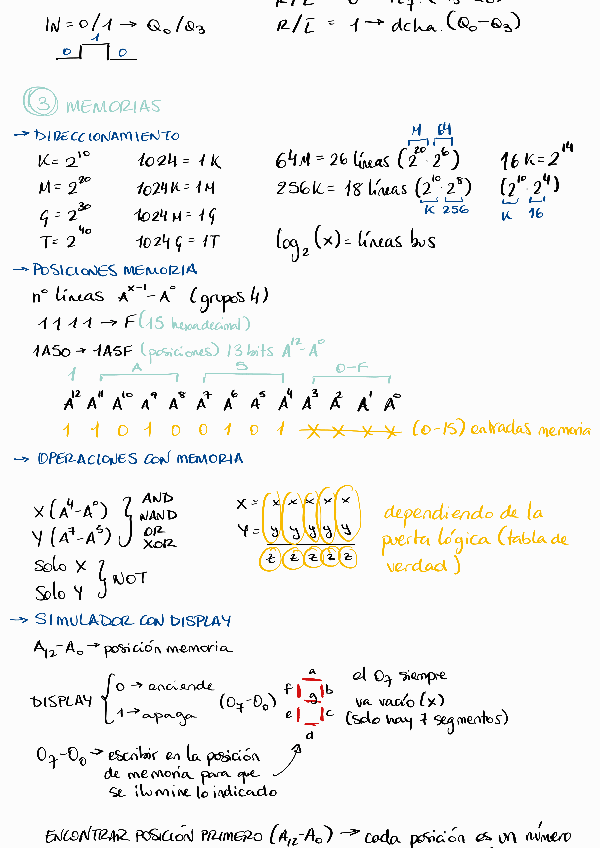 IN = 0/1 → Q₀/Q₃
R/L̅ = 1 → dcha. (Q₀-Q₃)
0 1 0
③ MEMORIAS
→ DIRECCIONAMIENTO
M 64
K = 2¹⁰ 1024 = 1K 64M = 26 líneas (2²⁰·2⁶) 16K = 2¹⁴
M = 2²⁰ 1024K = 1M 256K = 18 líneas (2¹⁰·2⁸) (2¹⁰·2⁴)
K 256 K 16
G = 2³⁰ 1024M = 1G
T = 2⁴⁰ 1024G = 1T log₂(x) = líneas bus
→ POSICIONES MEMORIA
nº líneas Aˣ⁻¹-A⁰ (grupos 4)
1111 → F (15 hexadecimal)
1A50 → 1A5F (posiciones) 13 bits A¹²-A⁰
1 A 5 0-F
A¹² A¹¹ A¹⁰ A⁹ A⁸ A⁷ A⁶ A⁵ A⁴ A³ A² A¹ A⁰
1 1 0 1 0 0 1 0 1 X X X X (0-15) entradas memoria
→ OPERACIONES CON MEMORIA
X (A⁴-A⁰)
Y (A⁷-A⁵)
AND
NAND
OR
XOR
Solo X
Solo Y
NOT
X = x x x x x
Y = y y y y y
z z z z z
dependiendo de la
puerta lógica (tabla de
verdad)
→ SIMULADOR CON DISPLAY
A₁₂-A₀ → posición memoria
DISPLAY
0 → enciende
1 → apaga
(O₇-O₀)
a
f b
g
e c
d
el O₇ siempre
va vacío (x)
(solo hay 7 segmentos)
O₇-O₀ → escribir en la posición
de memoria para que
se ilumine lo indicado
ENCONTRAR POSICIÓN PRIMERO (A₁₂-A₀) → cada posición es un número